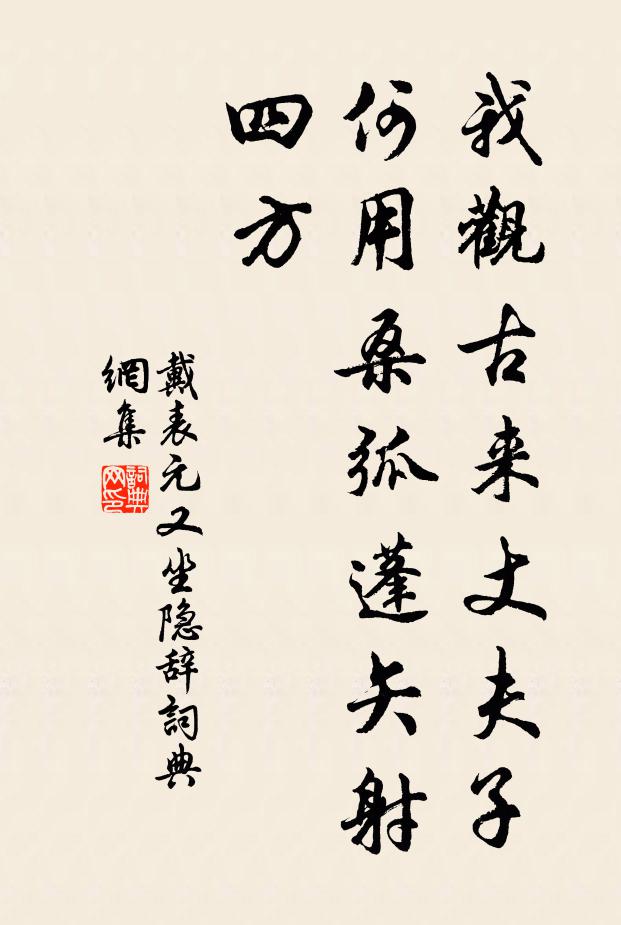 我觀古来丈夫子
何用桑弧蓬矢射
四方
戴表元又坐隐辞詞典
網集
詞典
网印